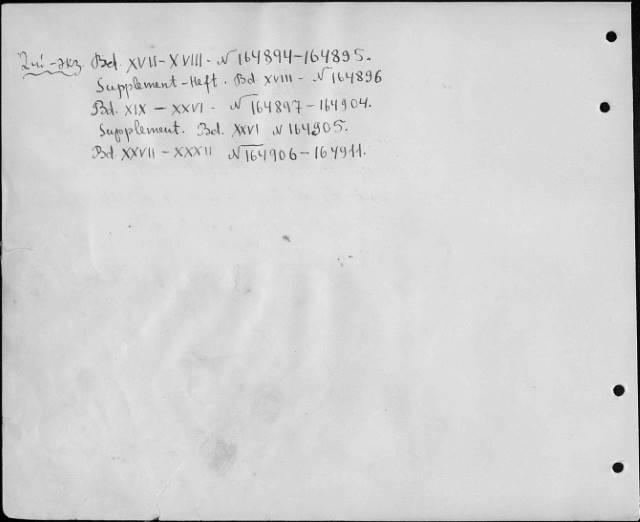 2ий-экз. Bd. XVII-XVIII - N 164894-164895.
Supplement-Heft. Bd XVIII - N 164896
Bd. XIX - XXVI - N 164897-164904.
Supplement. Bd. XXVI N 164905.
Bd. XXVII - XXXII N 164906-164911.